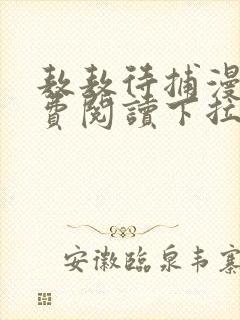 敖敖待捕漫
費閱讀下拉
安徽臨泉韦寨